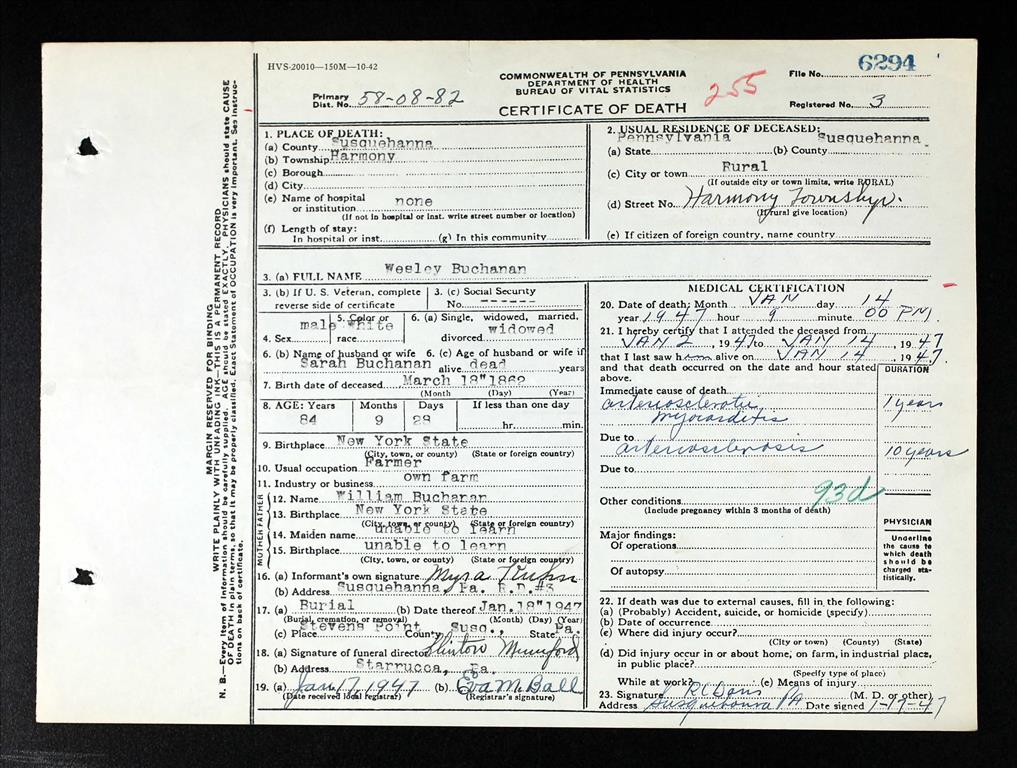 HVS-20010—150M—10-42
COMMONWEALTH OF PENNSYLVANIA
DEPARTMENT OF HEALTH
BUREAU OF VITAL STATISTICS
CERTIFICATE OF DEATH
Primary Dist. No. 58-08-82
255
File No. 6294
Registered No. 3
MARGIN RESERVED FOR BINDING
WRITE PLAINLY WITH UNFADING INK—THIS IS A PERMANENT RECORD
N. B.—Every item of information should be carefully supplied. AGE should be stated EXACTLY. PHYSICIANS should state CAUSE
OF DEATH in plain terms, so that it may be properly classified. Exact Statement of OCCUPATION is very important. See instruc-
tions on back of certificate.
1. PLACE OF DEATH:
(a) County Susquehanna
(b) Township Harmony
(c) Borough
(d) City
(e) Name of hospital
or institution none
(If not in hospital or inst. write street number or location)
(f) Length of stay:
In hospital or inst. (g) In this community
2. USUAL RESIDENCE OF DECEASED:
(a) State Pennsylvania (b) County Susquehanna
(c) City or town Rural
(If outside city or town limits, write RURAL)
(d) Street No. Harmony Township.
(If rural give location)
(e) If citizen of foreign country, name country
3. (a) FULL NAME Wesley Buchanan
3. (b) If U. S. Veteran, complete
reverse side of certificate
3. (c) Social Security
No. ------
4. Sex male
5. Color or
race White
6. (a) Single, widowed, married,
divorced widowed
6. (b) Name of husband or wife Sarah Buchanan
6. (c) Age of husband or wife if
alive dead years
7. Birth date of deceased March 18"1862
(Month) (Day) (Year)
8. AGE: Years Months Days If less than one day
84 9 28 hr. min.
9. Birthplace New York State
(City, town, or county) (State or foreign country)
10. Usual occupation Farmer
11. Industry or business own farm
FATHER
12. Name William Buchanan
13. Birthplace New York State
(City, town, or county) (State or foreign country)
MOTHER
14. Maiden name unable to learn
15. Birthplace unable to learn
(City, town, or county) (State or foreign country)
16. (a) Informant's own signature Myra
(b) Address Susquehanna, Pa. R.D.#3
17. (a) Burial (b) Date thereof Jan.18"1947
(Burial, cremation, or removal) (Month) (Day) (Year)
(c) Place Stevens Point County Susq., State Pa.
18. (a) Signature of funeral director Clinton Mumford
(b) Address Starrucca, Pa.
19. (a) Jan 17, 1947 (b) Eva M. Ball
(Date received local registrar) (Registrar's signature)
MEDICAL CERTIFICATION
20. Date of death: Month JAN day 14
year 1947 hour 9 minute 00 PM.
21. I hereby certify that I attended the deceased from
JAN 2, 1947 to JAN 14, 1947
that I last saw him alive on JAN 14, 1947.
and that death occurred on the date and hour stated
above.
DURATION
Immediate cause of death
arteriosclerotic 1 year
myocarditis
Due to arteriosclerosis 10 years
Due to
Other conditions 93d
(Include pregnancy within 3 months of death)
Major findings:
Of operations
Of autopsy
PHYSICIAN
Underline
the cause to
which death
should be
charged sta-
tistically.
22. If death was due to external causes, fill in the following:
(a) (Probably) Accident, suicide, or homicide (specify)
(b) Date of occurrence
(c) Where did injury occur?
(City or town) (County) (State)
(d) Did injury occur in or about home, on farm, in industrial place,
in public place?
(Specify type of place)
While at work? (e) Means of injury
23. Signature R C Davis (M. D. or other)
Address Susquehanna PA Date signed 1-17-47